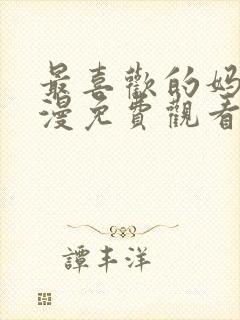 最喜歡的媽
漫免費觀看
譚丰洋